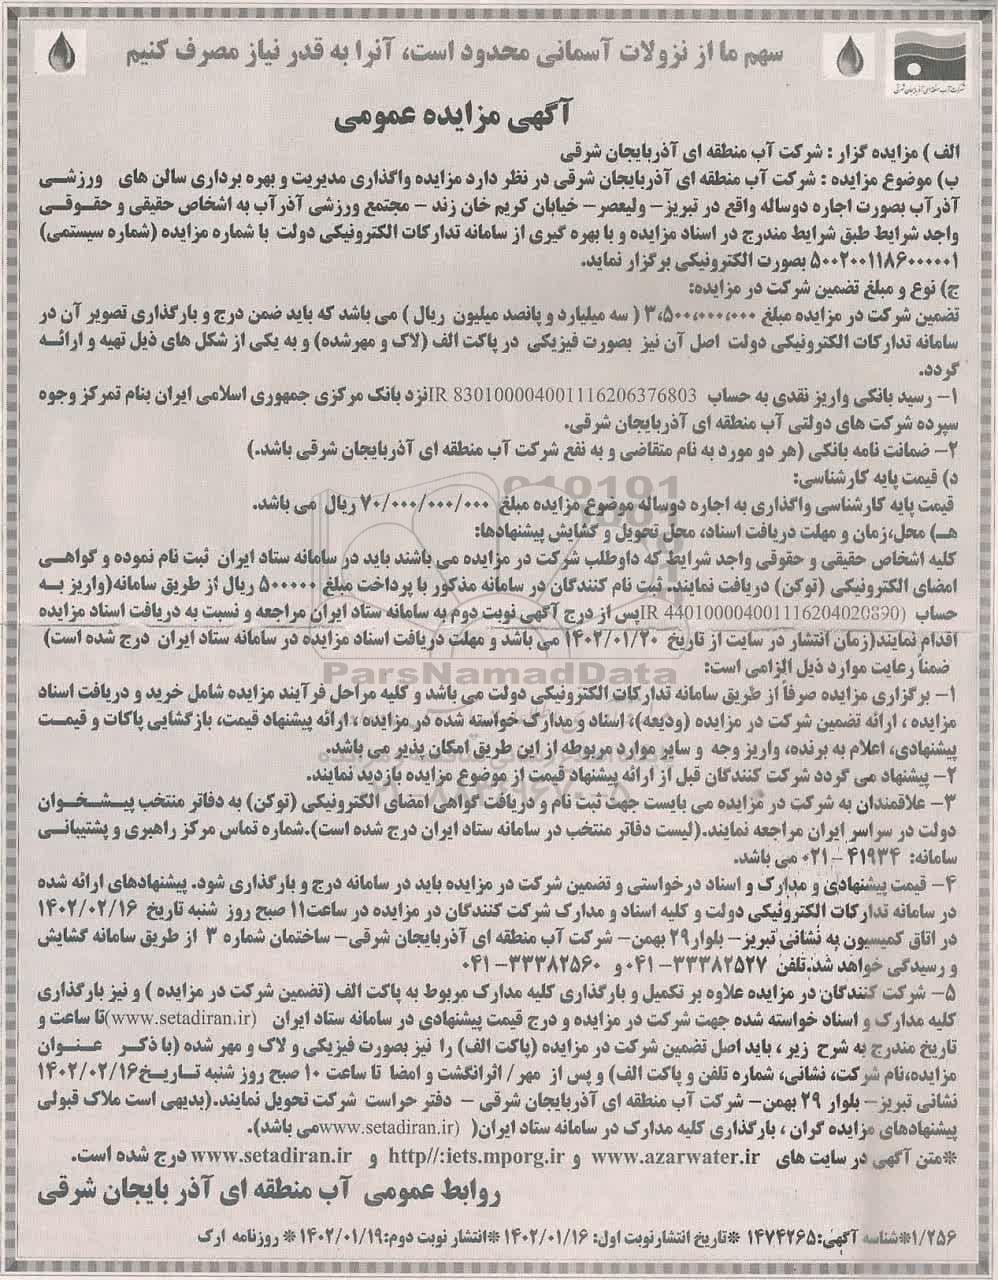 سهم ما از نزولات آسمانی محدود است، آنرا به قدر نیاز مصرف کنیم
شرکت آب منطقه ای آذربایجان شرقی
آگهی مزایده عمومی
الف ) مزایده گزار : شرکت آب منطقه ای آذربایجان شرقی
ب) موضوع مزایده : شرکت آب منطقه ای آذربایجان شرقی در نظر دارد مزایده واگذاری مدیریت و بهره برداری سالن های ورزشی
آذرآب بصورت اجاره دوساله واقع در تبریز- ولیعصر- خیابان کریم خان زند - مجتمع ورزشی آذرآب به اشخاص حقیقی و حقوقی
واجد شرایط طبق شرایط مندرج در اسناد مزایده و با بهره گیری از سامانه تدارکات الکترونیکی دولت با شماره مزایده (شماره سیستمی)
۵۰۰۲۰۰۱۱۸۶۰۰۰۰۰۱ بصورت الکترونیکی برگزار نماید.
ج) نوع و مبلغ تضمین شرکت در مزایده:
تضمین شرکت در مزایده مبلغ ۳،۵۰۰،۰۰۰،۰۰۰ ( سه میلیارد و پانصد میلیون ریال ) می باشد که باید ضمن درج و بارگذاری تصویر آن در
سامانه تدارکات الکترونیکی دولت اصل آن نیز بصورت فیزیکی در پاکت الف (لاک و مهرشده) و به یکی از شکل های ذیل تهیه و ارائه
گردد.
۱- رسید بانکی واریز نقدی به حساب IR 830100004001116206376803نزد بانک مرکزی جمهوری اسلامی ایران بنام تمرکز وجوه
سپرده شرکت های دولتی آب منطقه ای آذربایجان شرقی.
۲- ضمانت نامه بانکی (هر دو مورد به نام متقاضی و به نفع شرکت آب منطقه ای آذربایجان شرقی باشد.)
د) قیمت پایه کارشناسی:
قیمت پایه کارشناسی واگذاری به اجاره دوساله موضوع مزایده مبلغ ۷۰/۰۰۰/۰۰۰/۰۰۰ ریال می باشد.
هـ) محل،زمان و مهلت دریافت اسناد، محل تحویل و گشایش پیشنهادها:
کلیه اشخاص حقیقی و حقوقی واجد شرایط که داوطلب شرکت در مزایده می باشند باید در سامانه ستاد ایران ثبت نام نموده و گواهی
امضای الکترونیکی (توکن) دریافت نمایند. ثبت نام کنندگان در سامانه مذکور با پرداخت مبلغ ۵۰۰۰۰۰ ریال از طریق سامانه(واریز به
حساب (IR 440100004001116204020890پس از درج آگهی نوبت دوم به سامانه ستاد ایران مراجعه و نسبت به دریافت اسناد مزایده
اقدام نمایند(زمان انتشار در سایت از تاریخ ۱۴۰۲/۰۱/۲۰ می باشد و مهلت دریافت اسناد مزایده در سامانه ستاد ایران درج شده است)
ضمناً رعایت موارد ذیل الزامی است:
ParsNamadData
۱- برگزاری مزایده صرفاً از طریق سامانه تدارکات الکترونیکی دولت می باشد و کلیه مراحل فرآیند مزایده شامل خرید و دریافت اسناد
مزایده ، ارائه تضمین شرکت در مزایده (ودیعه)، اسناد و مدارک خواسته شده در مزایده ، ارائه پیشنهاد قیمت، بازگشایی پاکات و قیمت
پیشنهادی، اعلام به برنده، واریز وجه و سایر موارد مربوطه از این طریق امکان پذیر می باشد.
۲- پیشنهاد می گردد شرکت کنندگان قبل از ارائه پیشنهاد قیمت از موضوع مزایده بازدید نمایند.
۳- علاقمندان به شرکت در مزایده می بایست جهت ثبت نام و دریافت گواهی امضای الکترونیکی (توکن) به دفاتر منتخب پیشخوان
دولت در سراسر ایران مراجعه نمایند.(لیست دفاتر منتخب در سامانه ستاد ایران درج شده است).شماره تماس مرکز راهبری و پشتیبانی
سامانه: ۴۱۹۳۴ - ۰۲۱ می باشد.
۴- قیمت پیشنهادی و مدارک و اسناد درخواستی و تضمین شرکت در مزایده باید در سامانه درج و بارگذاری شود. پیشنهادهای ارائه شده
در سامانه تدارکات الکترونیکی دولت و کلیه اسناد و مدارک شرکت کنندگان در مزایده در ساعت۱۱ صبح روز شنبه تاریخ ۱۴۰۲/۰۲/۱۶
در اتاق کمیسیون به نشانی تبریز- بلوار۲۹ بهمن- شرکت آب منطقه ای آذربایجان شرقی- ساختمان شماره ۳ از طریق سامانه گشایش
و رسیدگی خواهد شد.تلفن ۳۳۳۸۲۵۲۷- ۰۴۱ و ۳۳۳۸۲۵۶۰- ۰۴۱
۵- شرکت کنندگان در مزایده علاوه بر تکمیل و بارگذاری کلیه مدارک مربوط به پاکت الف (تضمین شرکت در مزایده ) و نیز بارگذاری
کلیه مدارک و اسناد خواسته شده جهت شرکت در مزایده و درج قیمت پیشنهادی در سامانه ستاد ایران (www.setadiran.ir)تا ساعت و
تاریخ مندرج به شرح زیر ، باید اصل تضمین شرکت در مزایده (پاکت الف) را نیز بصورت فیزیکی و لاک و مهر شده (با ذکر عنوان
مزایده،نام شرکت، نشانی، شماره تلفن و پاکت الف) و پس از مهر/ اثرانگشت و امضا تا ساعت ۱۰ صبح روز شنبه تاریخ۱۴۰۲/۰۲/۱۶
نشانی تبریز- بلوار ۲۹ بهمن- شرکت آب منطقه ای آذربایجان شرقی - دفتر حراست شرکت تحویل نمایند.(بدیهی است ملاک قبولی
پیشنهادهای مزایده گران ، بارگذاری کلیه مدارک در سامانه ستاد ایران( (www.setadiran.irمی باشد).
*متن آگهی در سایت های www.azarwater.ir و http//:iets.mporg.ir و www.setadiran.ir درج شده است.
روابط عمومی آب منطقه ای آذر بایجان شرقی
۱/۲۵۶*شناسه آگهی:۱۴۷۴۲۶۵ *تاریخ انتشارنوبت اول: ۱۴۰۲/۰۱/۱۶ *انتشار نوبت دوم:۱۴۰۲/۰۱/۱۹ * روزنامه ارک